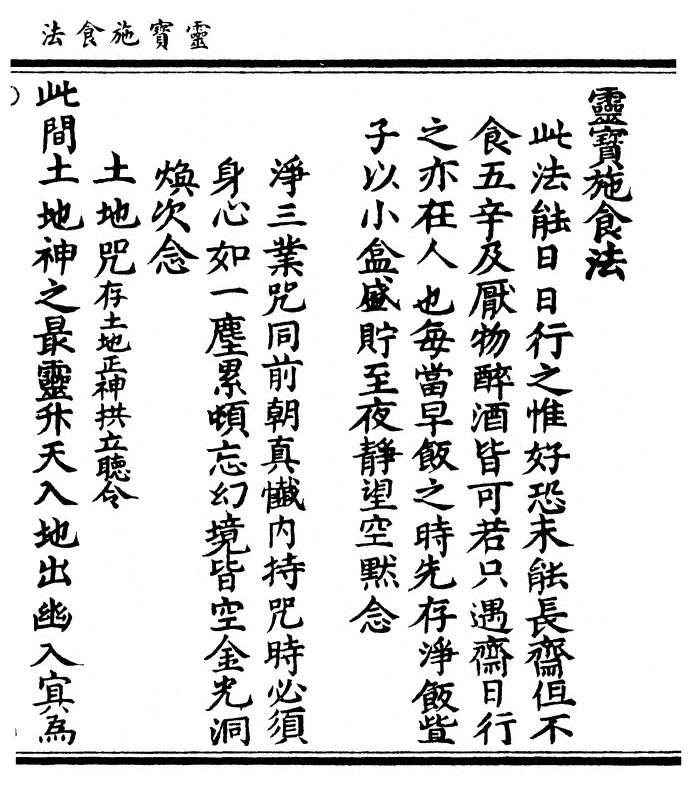 靈寶施食法
靈寶施食法
此法能日日行之惟好恐未能長齋但不
食五辛及厭物醉酒皆可若只遇齋日行
之亦在人也每當早飯之時先存淨飯
子以小盒盛貯至夜靜望空默念
淨三業咒同前朝真懺內持咒時必須
身心如一塵累頓忘幻境皆空金光洞
煥次念
土地咒存土地正神拱立聽令
此間土地神之最靈升天入地出幽入冥為